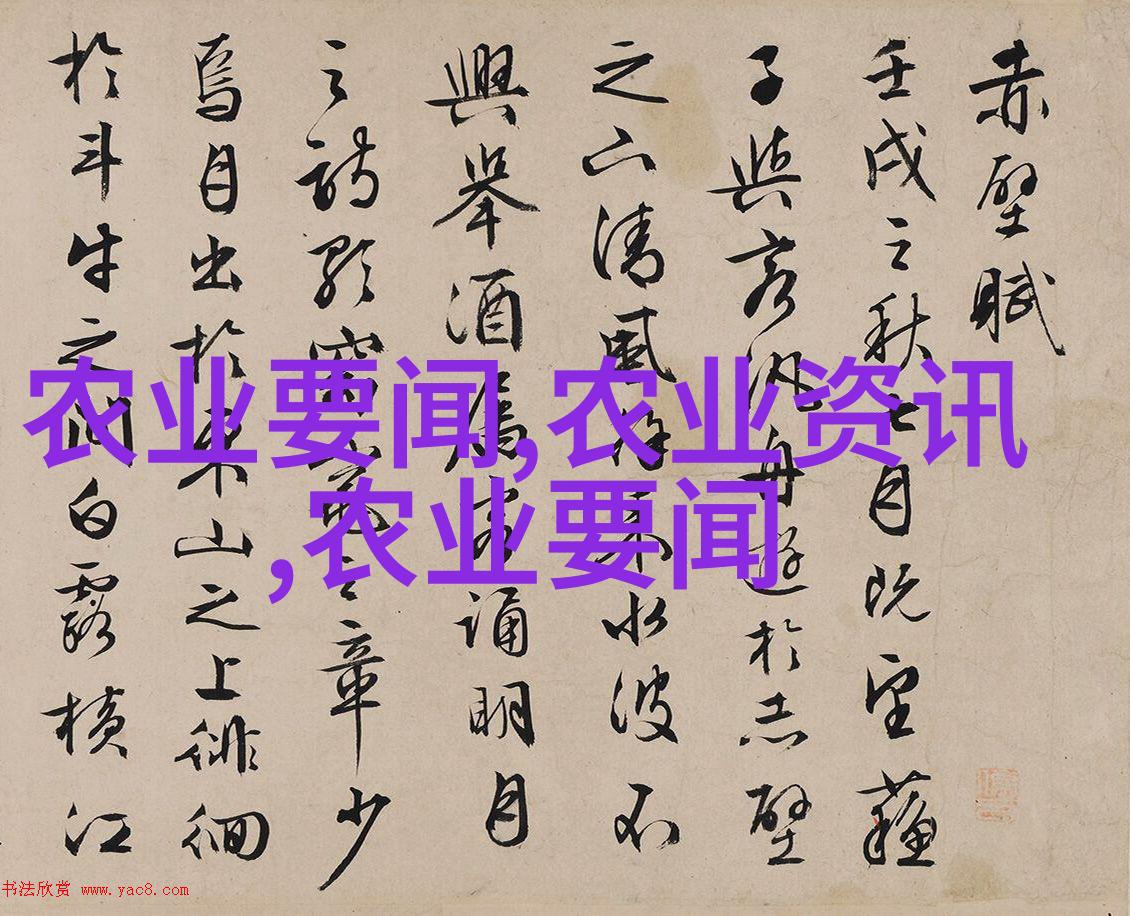 赤壁賦
壬戌之秋七月既望蘇
子與客汎舟遊於赤壁
之下清風徐來水波不
興舉酒屬客誦明月
之詩歌窈窕之章少
焉月出於東山之上徘徊
於斗牛之間白露橫江
农业要闻,农业资讯
,农业要闻
书法欣赏 www.yac8.com